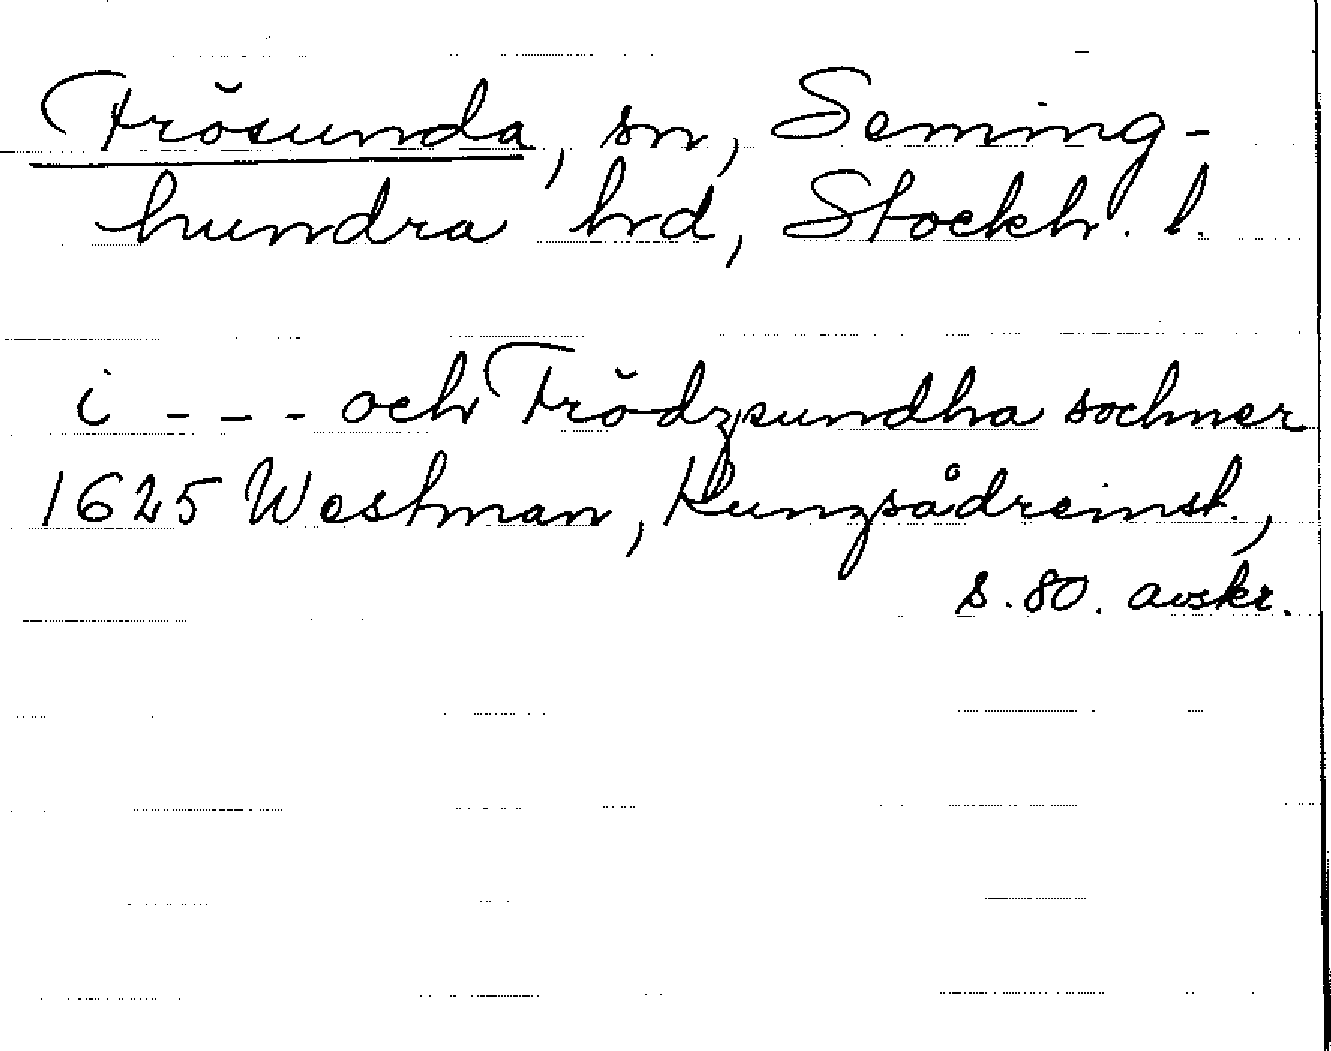 Frösunda, sn, Seming-
hundra hrd, Stockh. l.
i - - - och Frödzsundha sochner
1625 Westman, Kungsådreinst.,
s. 80. avskr.